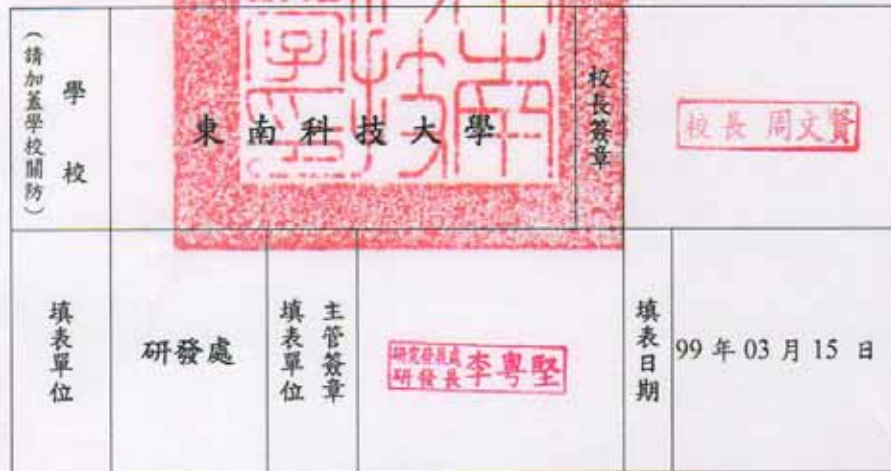 學校
（請加蓋學校關防）
東南科技大學
校長簽章
校長 周文賢
填表單位
研發處
填表單位
主管簽章
研究發展處
研發長 李粵堅
填表日期
99 年 03 月 15 日